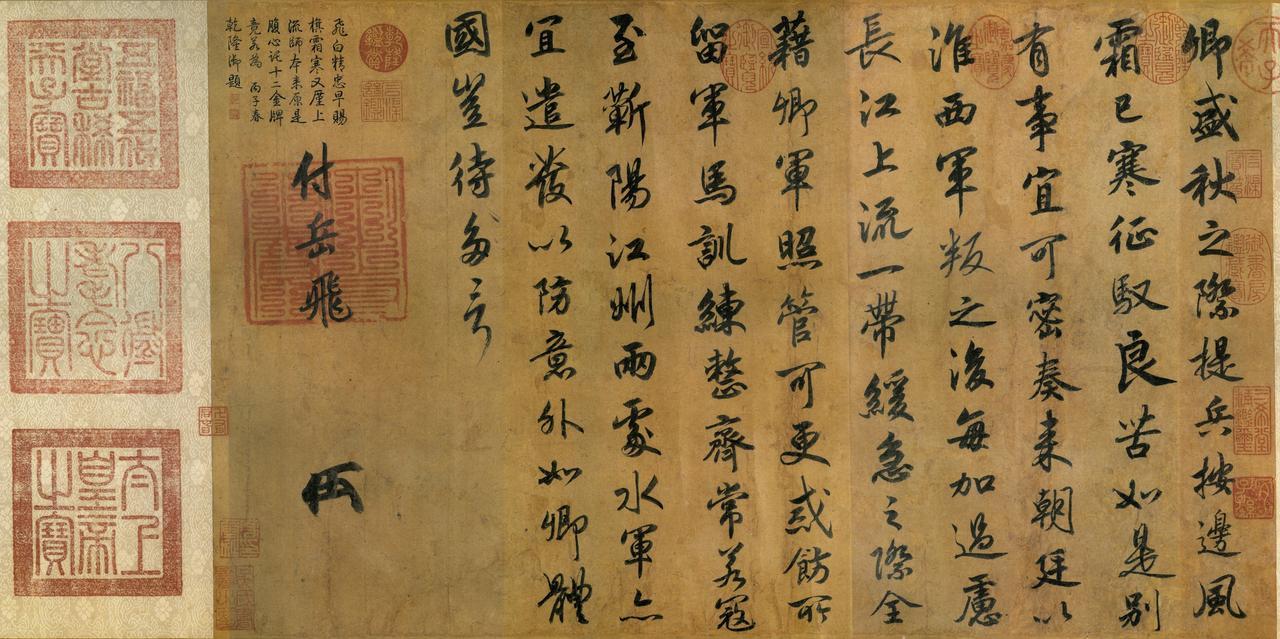 卿盛秋之際提兵按邊風
霜已寒征馭良苦如是別
有事宜可密奏来朝廷以
淮西軍叛之後每加過慮
長江上流一帶緩急之際全
藉卿軍照管可更戒飭所
留軍馬訓練整齊常若寇
至蘄陽江州兩處水軍亦
宜遣發以防意外如卿體
國豈待多言
付岳飛
飛白精忠早賜
旗霜寒又歷上
流師本来原是
腹心託十二金牌
竟若為 丙子春
乾隆御題
五福五代
堂古稀
天子寶
八徵
耄念
之寶
太上
皇帝
之寶